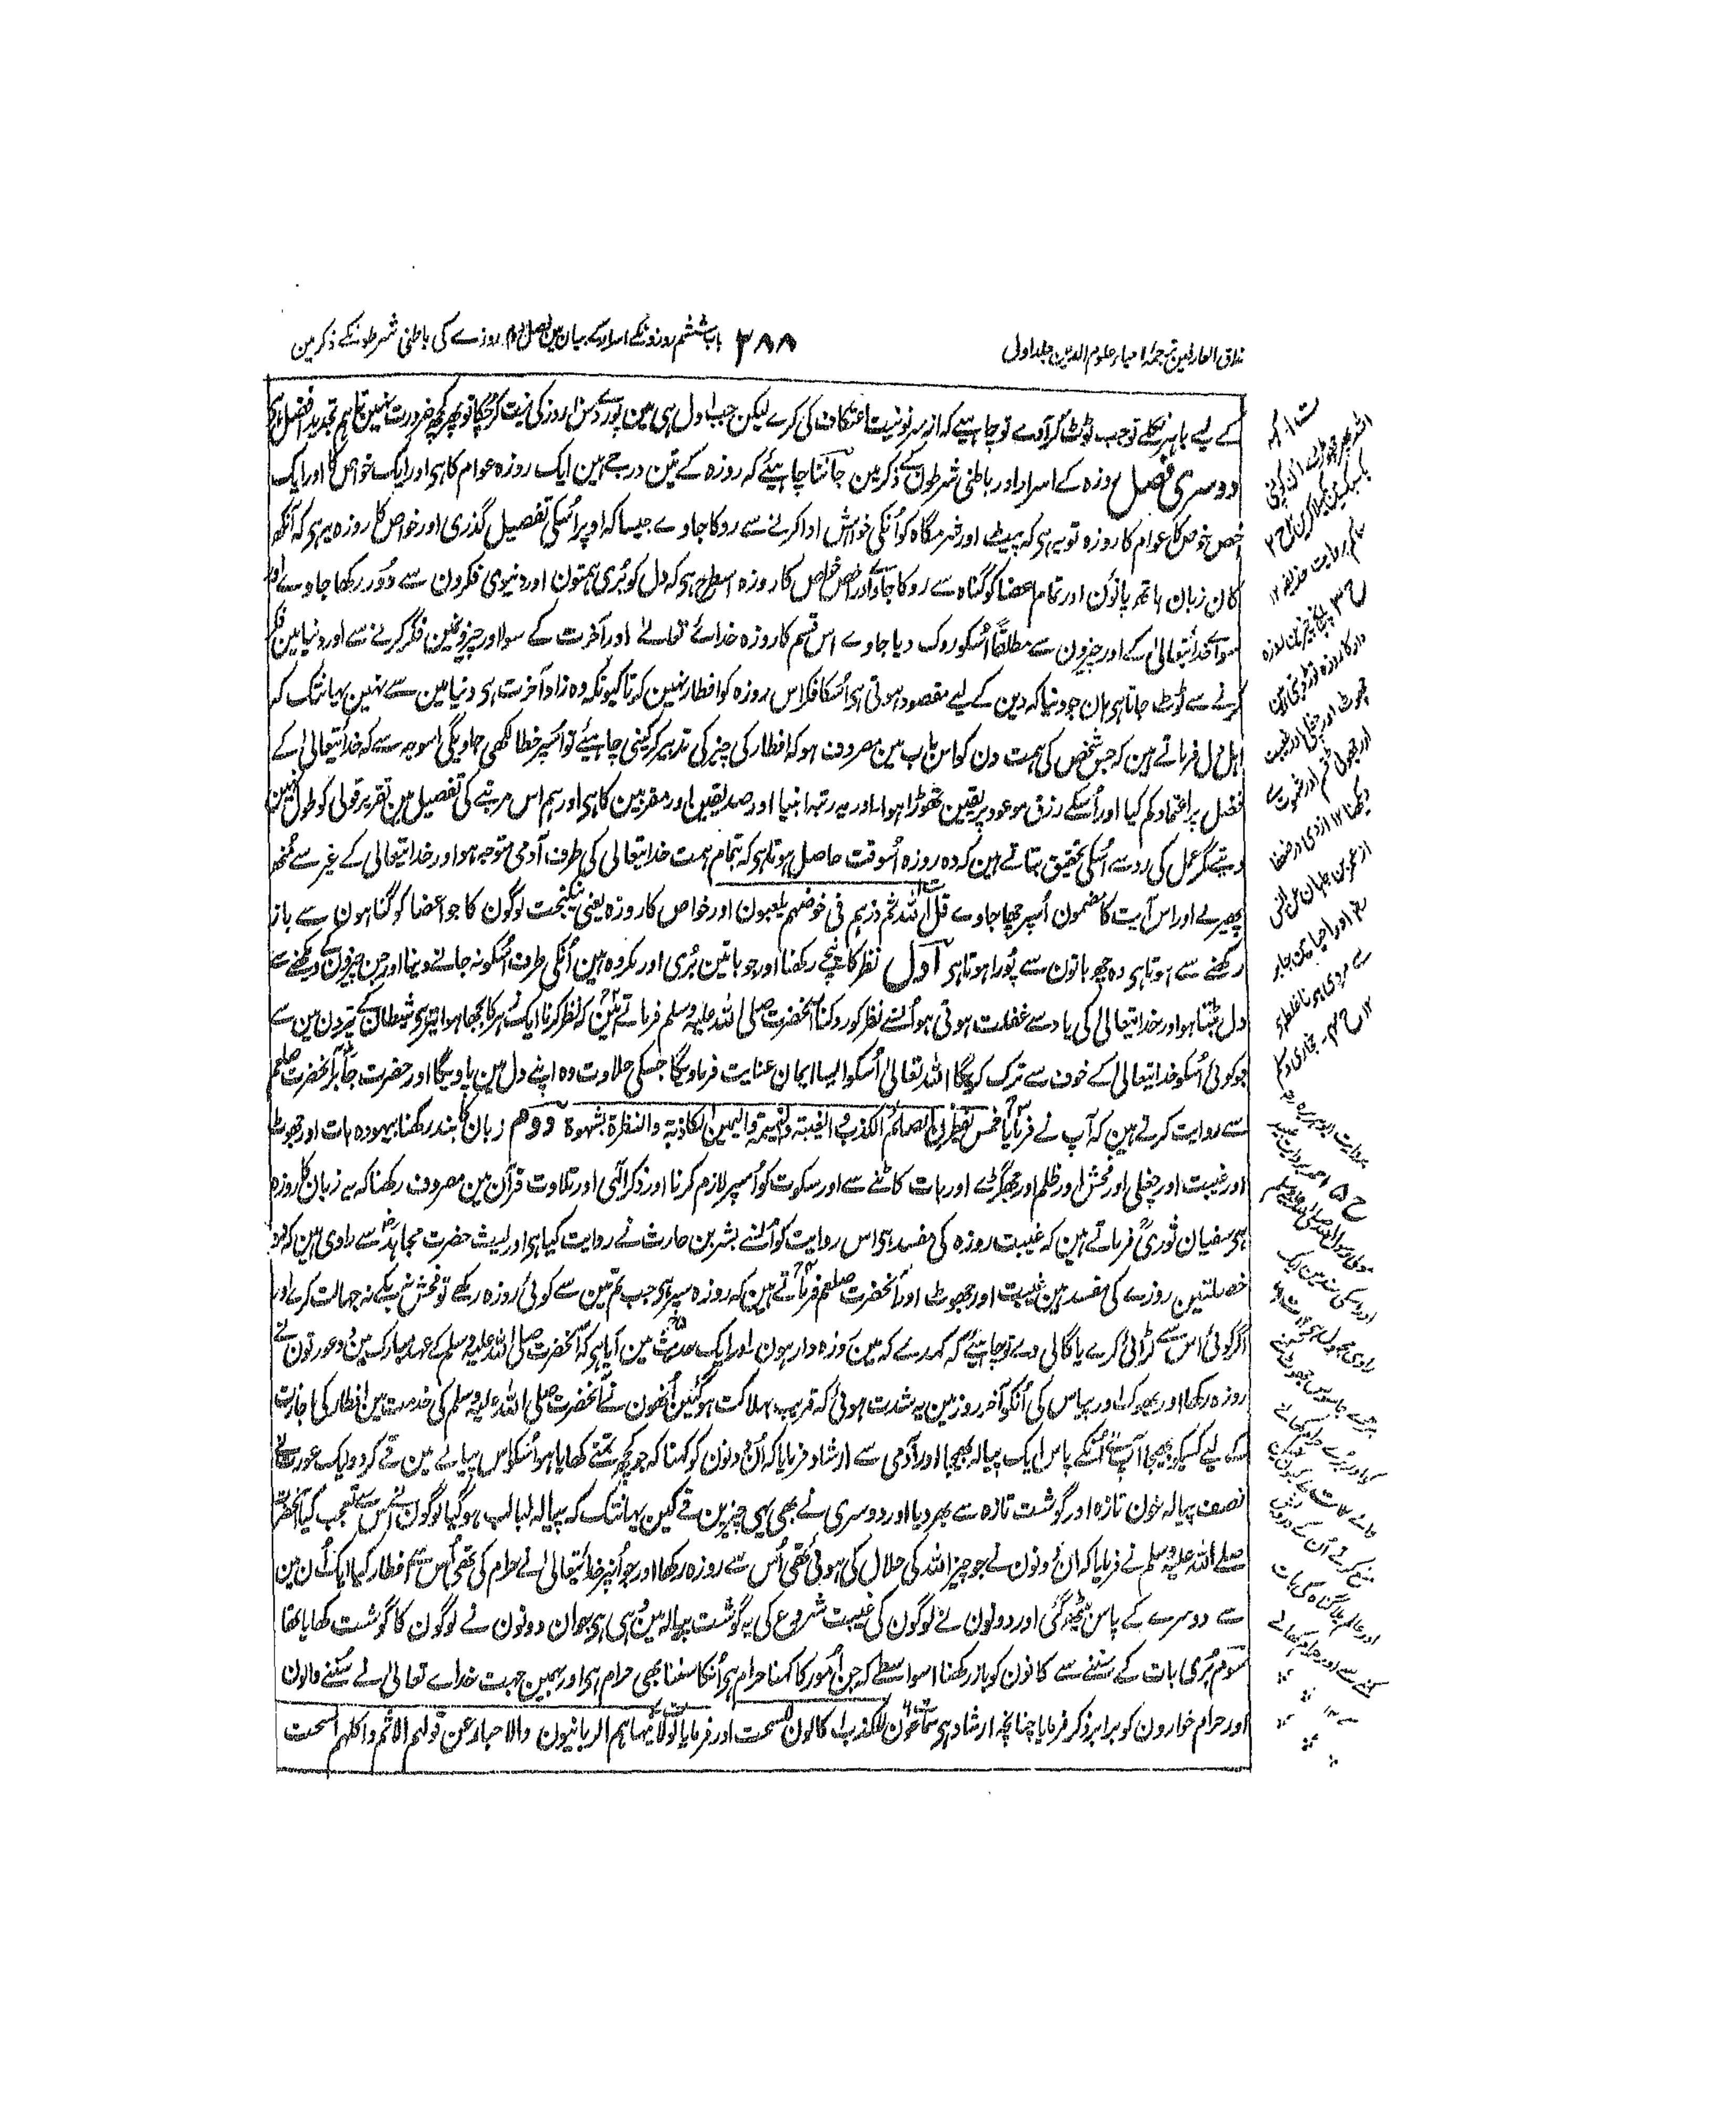 مذاق العارفین ترجمۂ احیاء علوم الدین جلد اول
۳۸۸
باب ششم روزونکے اسرار کے بیان مین فصل دوم روزے کی باطنی شرطونکے ذکر مین
کے لیے باہر نکلے تو جب لوٹ کر آوے تو چاہیے کہ از سر نو نیت اعتکاف کی کرے لیکن جب اول ہی مین پورے دس روز کی نیت کر چکا تو پھر کچھ ضرورت نہین تاہم تجدید افضل ہی
دوسری فصل روزہ کے اسرار اور باطنی شرطون کے ذکر مین جاننا چاہیئے کہ روزہ کے تین درجے ہین ایک روزہ عوام کا ہی اور ایک خواص کا اور ایک
خص خواص کا عوام کا روزہ تو یہ ہی کہ پیٹ اور شرمگاہ کو اُنکی خواہش ادا کرنے سے روکا جاوے جیسا کہ اوپر اُسکی تفصیل گذری اور خواص کا روزہ یہ ہی کہ آنکھ
کان زبان ہاتھ پانوٗن اور تمام اعضا کو گناہ سے روکا جاوے اور اخص خواص کا روزہ اسطرح ہی کہ دل کو بُری ہمتون اور دنیوی فکرون سے دُور رکھا جاوے اور
سواے خداتعالیٰ کے اور چیزون سے مطلقاً اُسکو روک دیا جاوے اس قسم کا روزہ خداے تعالیٰ اور آخرت کے سوا اور چیزونمین فکر کرنے سے اور دنیا مین فکر
کرنے سے ٹوٹ جاتا ہی ہان جو دنیا کہ دین کے لیے مقصود ہوتی ہی اُسکا فکر اس روزہ کو افطار نہین کرتا کیونکہ وہ زاد آخرت ہی دنیا مین سے نہین یہانتک کہ
اہل دل فرماتے ہین کہ جس شخص کی ہمت دن کو اس باب مین مصروف ہو کہ افطار کی چیز کی تدبیر کرلینی چاہیئے تو اُسپر خطا لکھی جاویگی اسوجہ سے کہ خداتعالیٰ کے
فضل پر اعتماد کم کیا اور اُسکے رزق موعود پر یقین تھوڑا ہوا اور یہ رتبہ انبیا اور صدیقین اور مقربین کا ہی اور ہم اس مرتبے کی تفصیل مین تقریر قولی کو طول نہین
دیتے مگر عمل کی رو سے اُسکی تحقیق بتاتے ہین کہ وہ روزہ اُسوقت حاصل ہوتا ہی کہ تمام ہمت خداتعالی کی طرف آدمی متوجہ ہو اور خداتعالی کے غیر سے مُنھ
پھیرے اور اس آیت کا مضمون اُسپر چھا جاوے قل اللہ ثم ذرہم فی خوضہم یلعبون اور خواص کا روزہ یعنی نیکبخت لوگون کا جو اعضا کو گناہون سے باز
رکھنے سے ہوتا ہی وہ چھ باتون سے پورا ہوتا ہی اول نظر کا نیچے رکھنا اور جو باتین بُری اور مکروہ ہین اُنکی طرف اُسکو نہ جانے دینا اور جن چیزون کے دیکھنے سے
دل بٹتا ہو اور خداتعالی کی یاد سے غفلت ہوتی ہو اُنسے نظر کو روکنا آنحضرت صلی اللہ علیہ وسلم فرماتے ہین کہ نظر کرنا ایک زہر کا بجھا ہوا تیر ہی شیطان کے تیرون مین سے
جو کوئی اُسکو خداتعالی کے خوف سے ترک کریگا اللہ تعالی اُسکو ایسا ایمان عنایت فرماویگا جسکی حلاوت وہ اپنے دل مین پاویگا اور حضرت جابر آنحضرت صلعم
سے روایت کرتے ہین کہ آپ نے فرمایا خمس یفطرن الصائم الکذب والغیبۃ والنمیمۃ والیمین الکاذبۃ والنظرۃ بشہوۃ دوم زبان کا بند رکھنا بیہودہ بات اور جھوٹ
اور غیبت اور چغلی اور فحش اور ظلم اور جھگڑے اور بات کاٹنے سے اور سکوت کو اُسپر لازم کرنا اور ذکر الٰہی اور تلاوت قرآن مین مصروف رکھنا کہ یہ زبان کا روزہ
ہی سفیان ثوری فرماتے ہین کہ غیبت روزہ کی مفسد ہی اس روایت کو اُنسے بشر بن حارث نے روایت کیا ہی اور لیث حضرت مجاہد سے راوی ہین کہ دو
خصلتین روزے کی مفسد ہین غیبت اور جھوٹ اور آنحضرت صلعم فرماتے ہین کہ روزہ سپر ہی جب تم مین سے کوئی روزہ رکھے تو فحش نہ بکے نہ جہالت کرے اور
اگر کوئی اُس سے لڑائی کرے یا گالی دے تو چاہیئے کہ کہدے کہ مین روزہ دار ہون اور ایک حدیث مین آیا ہی کہ آنحضرت صلی اللہ علیہ وسلم کے عہد مبارک مین دو عورتون نے
روزہ رکھا اور بھوک اور پیاس کی اُنکو آخر روز مین یہ شدت ہوئی کہ قریب ہلاکت ہو گئین اُنھون نے آنحضرت صلی اللہ علیہ وسلم کی خدمت مین افطار کی اجازت
کے لیے کسیکو بھیجا آپ نے اُنکے پاس ایک پیالہ بھیجا اور آدمی سے ارشاد فرمایا کہ اُن دونون کو کہنا کہ جو کچھ تمنے کھایا ہو اُسکو اس پیالے مین قے کردو ایک عورت نے
نصف پیالہ خون تازہ اور گوشت تازہ سے بھر دیا اور دوسری نے بھی یہی چیزین قے کین یہانتک کہ پیالہ لبالب ہو گیا لوگون نے اس سے تعجب کیا آنحضرت
صلے اللہ علیہ وسلم نے فرمایا کہ ان دونون نے جو چیز اللہ کی حلال کی ہوئی تھی اُس سے روزہ رکھا اور جو اُنپر خداتعالی نے حرام کی تھی اُس سے افطار کیا ایک اُن مین
سے دوسرے کے پاس بیٹھ گئی اور دونون نے لوگون کی غیبت شروع کی یہ گوشت پیالہ مین وہی ہی جو ان دونون نے لوگون کا گوشت کھایا تھا
سوم بُری بات کے سننے سے کانون کو باز رکھنا اسواسطے کہ جن اُمور کا کہنا حرام ہی اُنکا سننا بھی حرام ہی اور ہمین جہت خداے تعالی نے سُننے والون
اور حرام خوارون کو برابر ذکر فرمایا چنانچہ ارشاد ہی سماعون للکذب اکالون للسحت اور فرمایا لولا ینہاہم الربانیون والاحبار عن قولہم الاثم واکلہم السحت